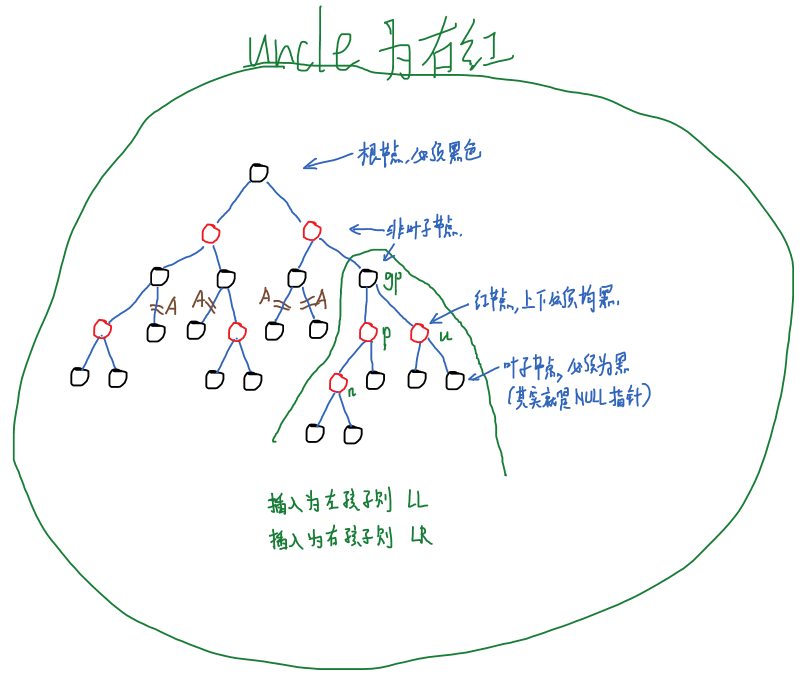 uncle 为右红
根节点,必须黑色
非叶子节点.
gp
A A A A
红节点,上下必须均黑.
p
u
叶子节点,必须为黑
(其实就是NULL指针)
n
插入为左孩子则 LL
插入为右孩子则 LR